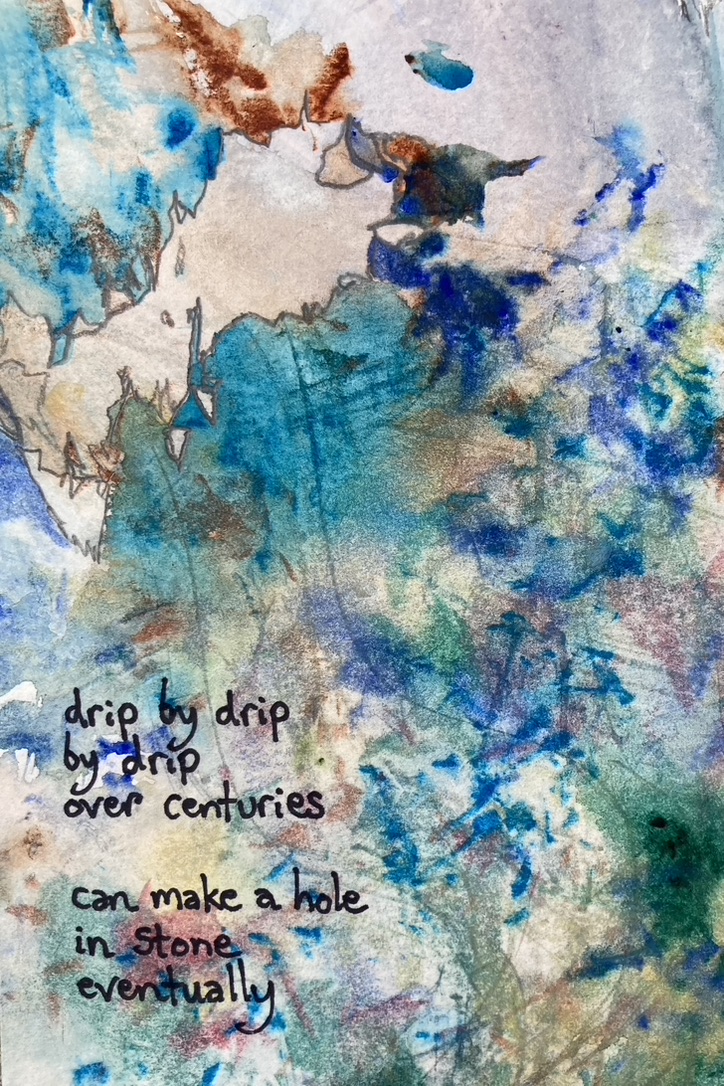 drip by drip
by drip
over centuries
can make a hole
in stone
eventually